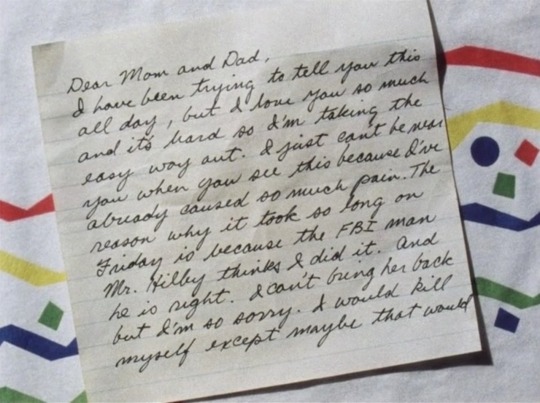 Dear Mom and Dad,
I have been trying to tell you this
all day, but I love you so much
and it's hard so I'm taking the
easy way out. I just can't be near
you when you see this because I've
already caused so much pain. The
reason why it took so long on
Friday is because the FBI man
Mr. Hilby thinks I did it. And
he is right. I can't bring her back
but I'm so sorry. I would kill
myself except maybe that would